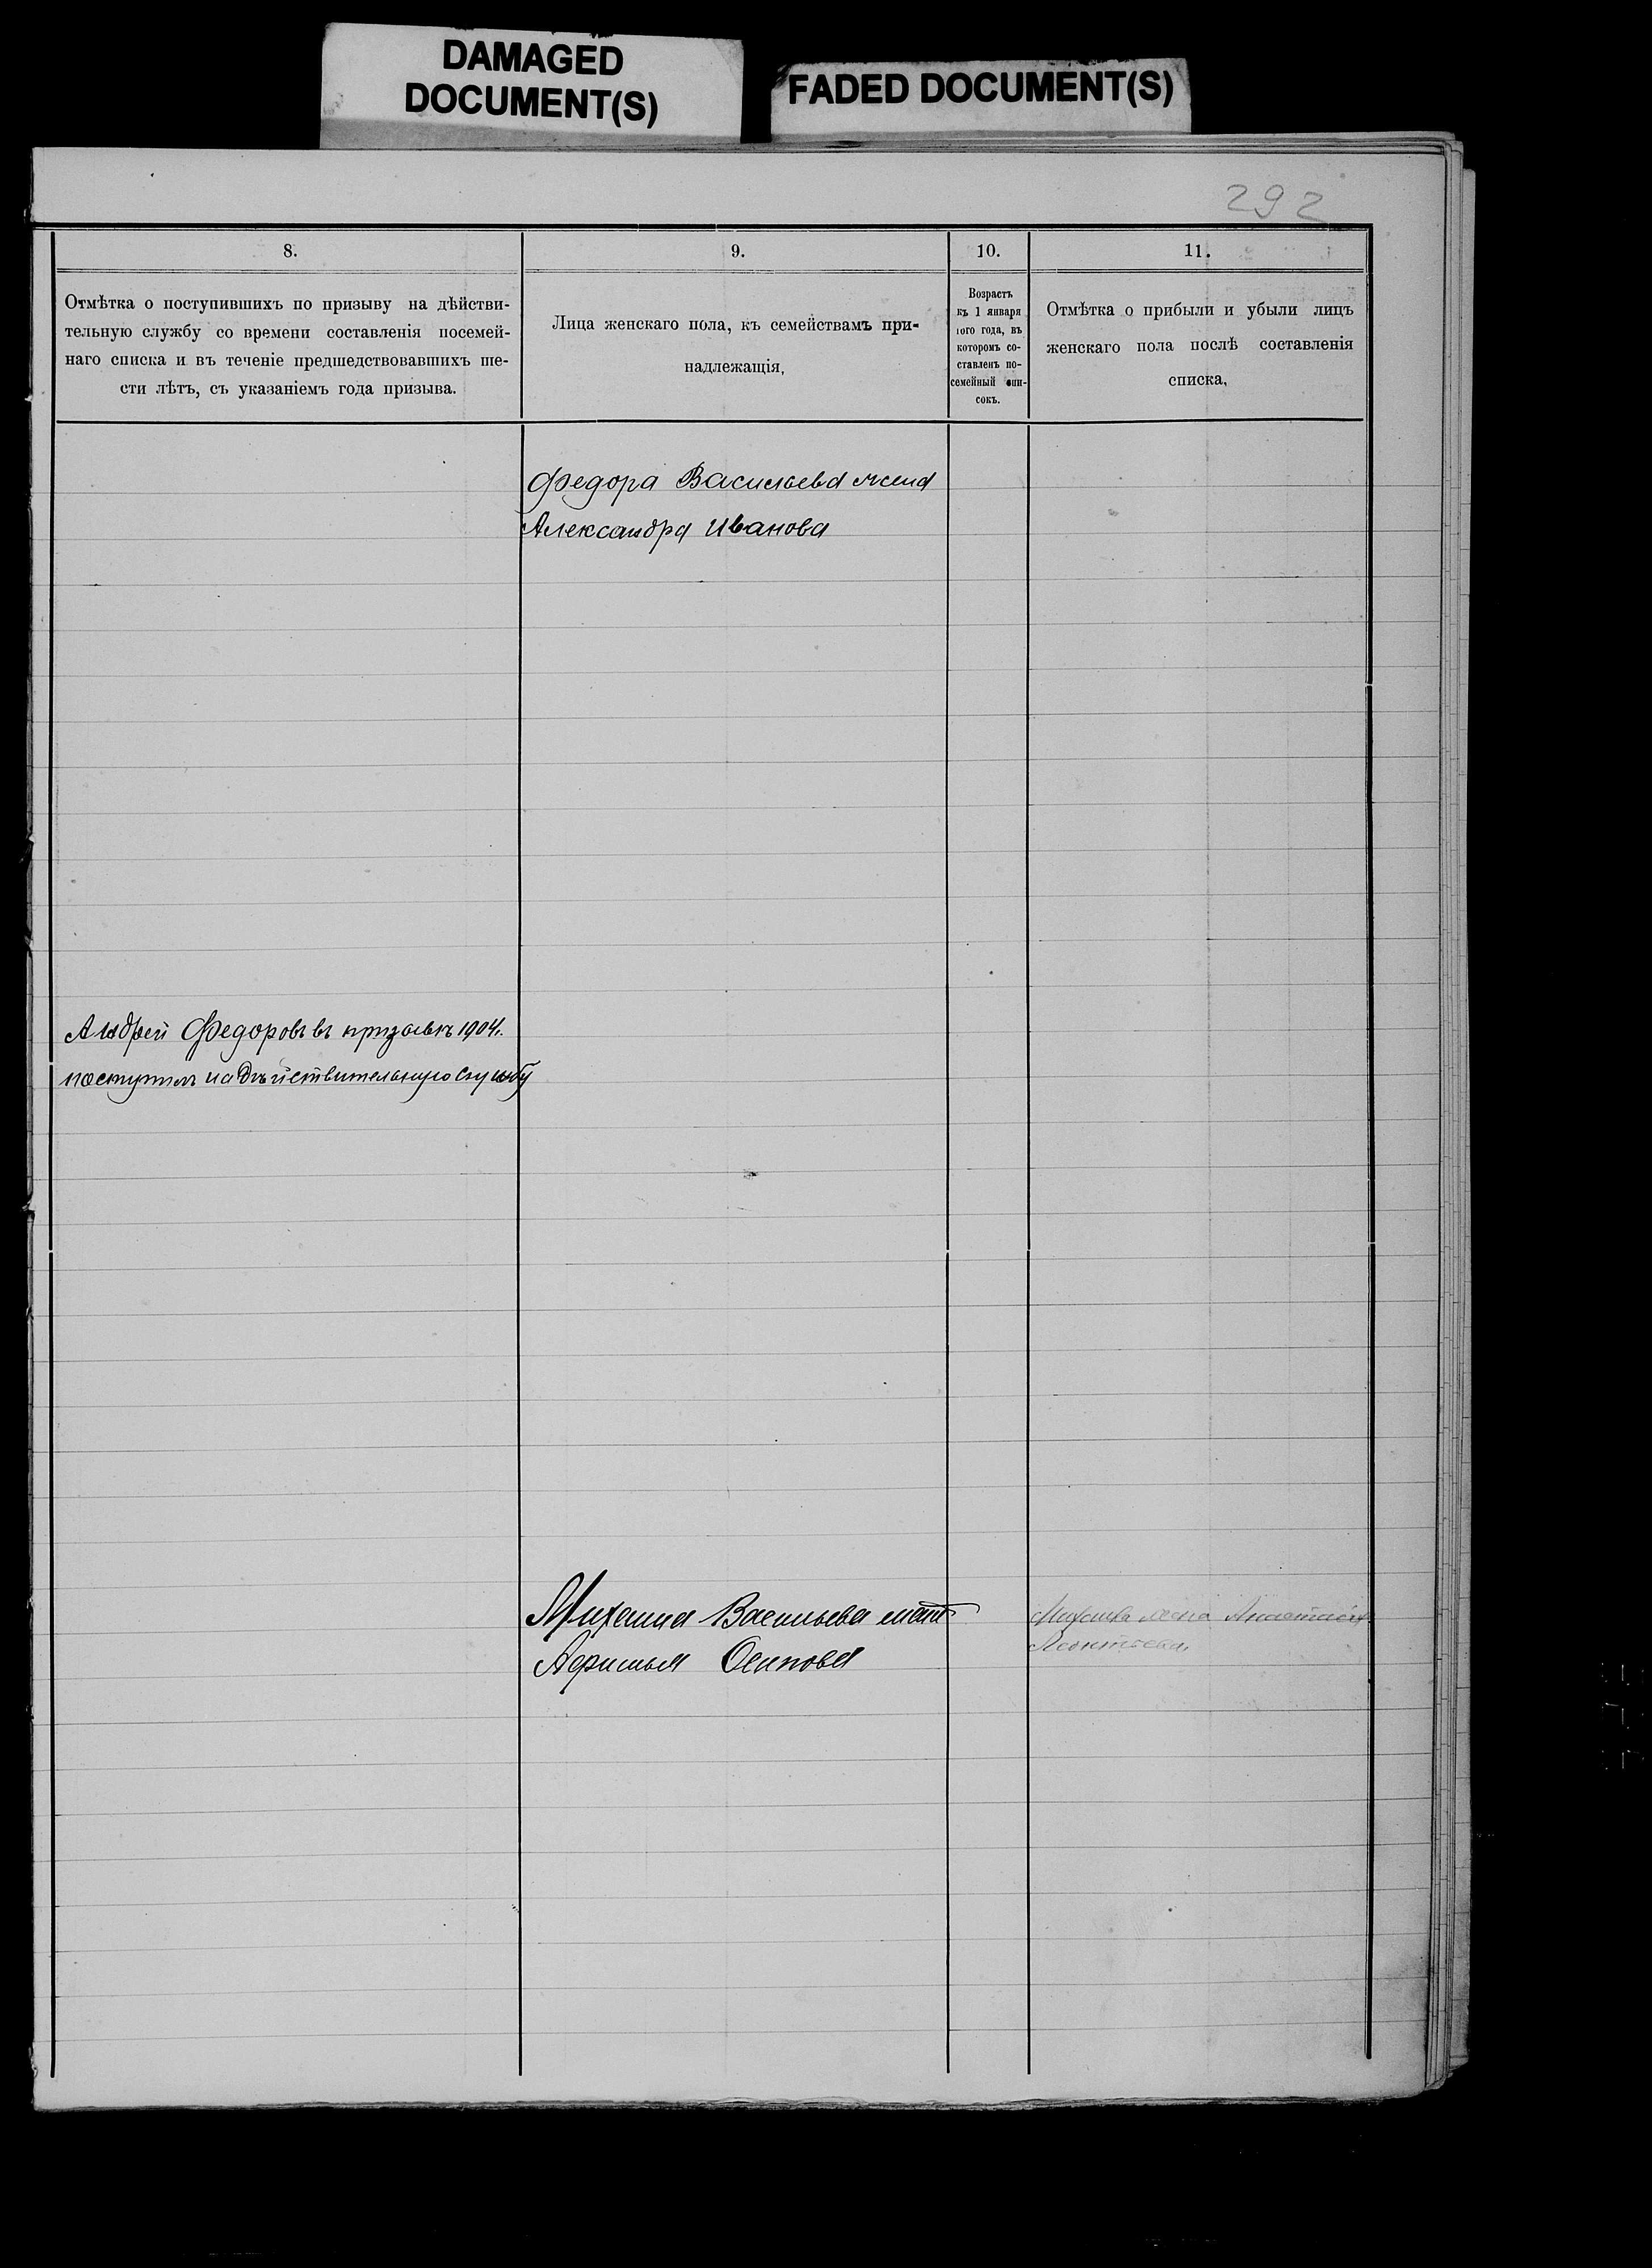 DAMAGED
DOCUMENT(S)
FADED DOCUMENT(S)
292
8.
Отмѣтка о поступившихъ по призыву на дѣйстви-
тельную службу со времени составленія посемей-
наго списка и въ теченіе предшедствовавшихъ ше-
сти лѣтъ, съ указаніемъ года призыва.
9.
Лица женскаго пола, къ семействамъ при-
надлежащія,
10.
Возрастъ
къ 1 января
того года, въ
которомъ со-
ставленъ по-
семейный спи-
сокъ.
11.
Отмѣтка о прибыли и убыли лицъ
женскаго пола послѣ составленія
списка,
Федора Васильева жена
Александра Иванова
Андрей Федоровъ въ призывъ 1904.
поступилъ на дѣйствительную службу
Михаила Васильева мать
Осипова
Михаила жена Анастасія
Леонтьева.